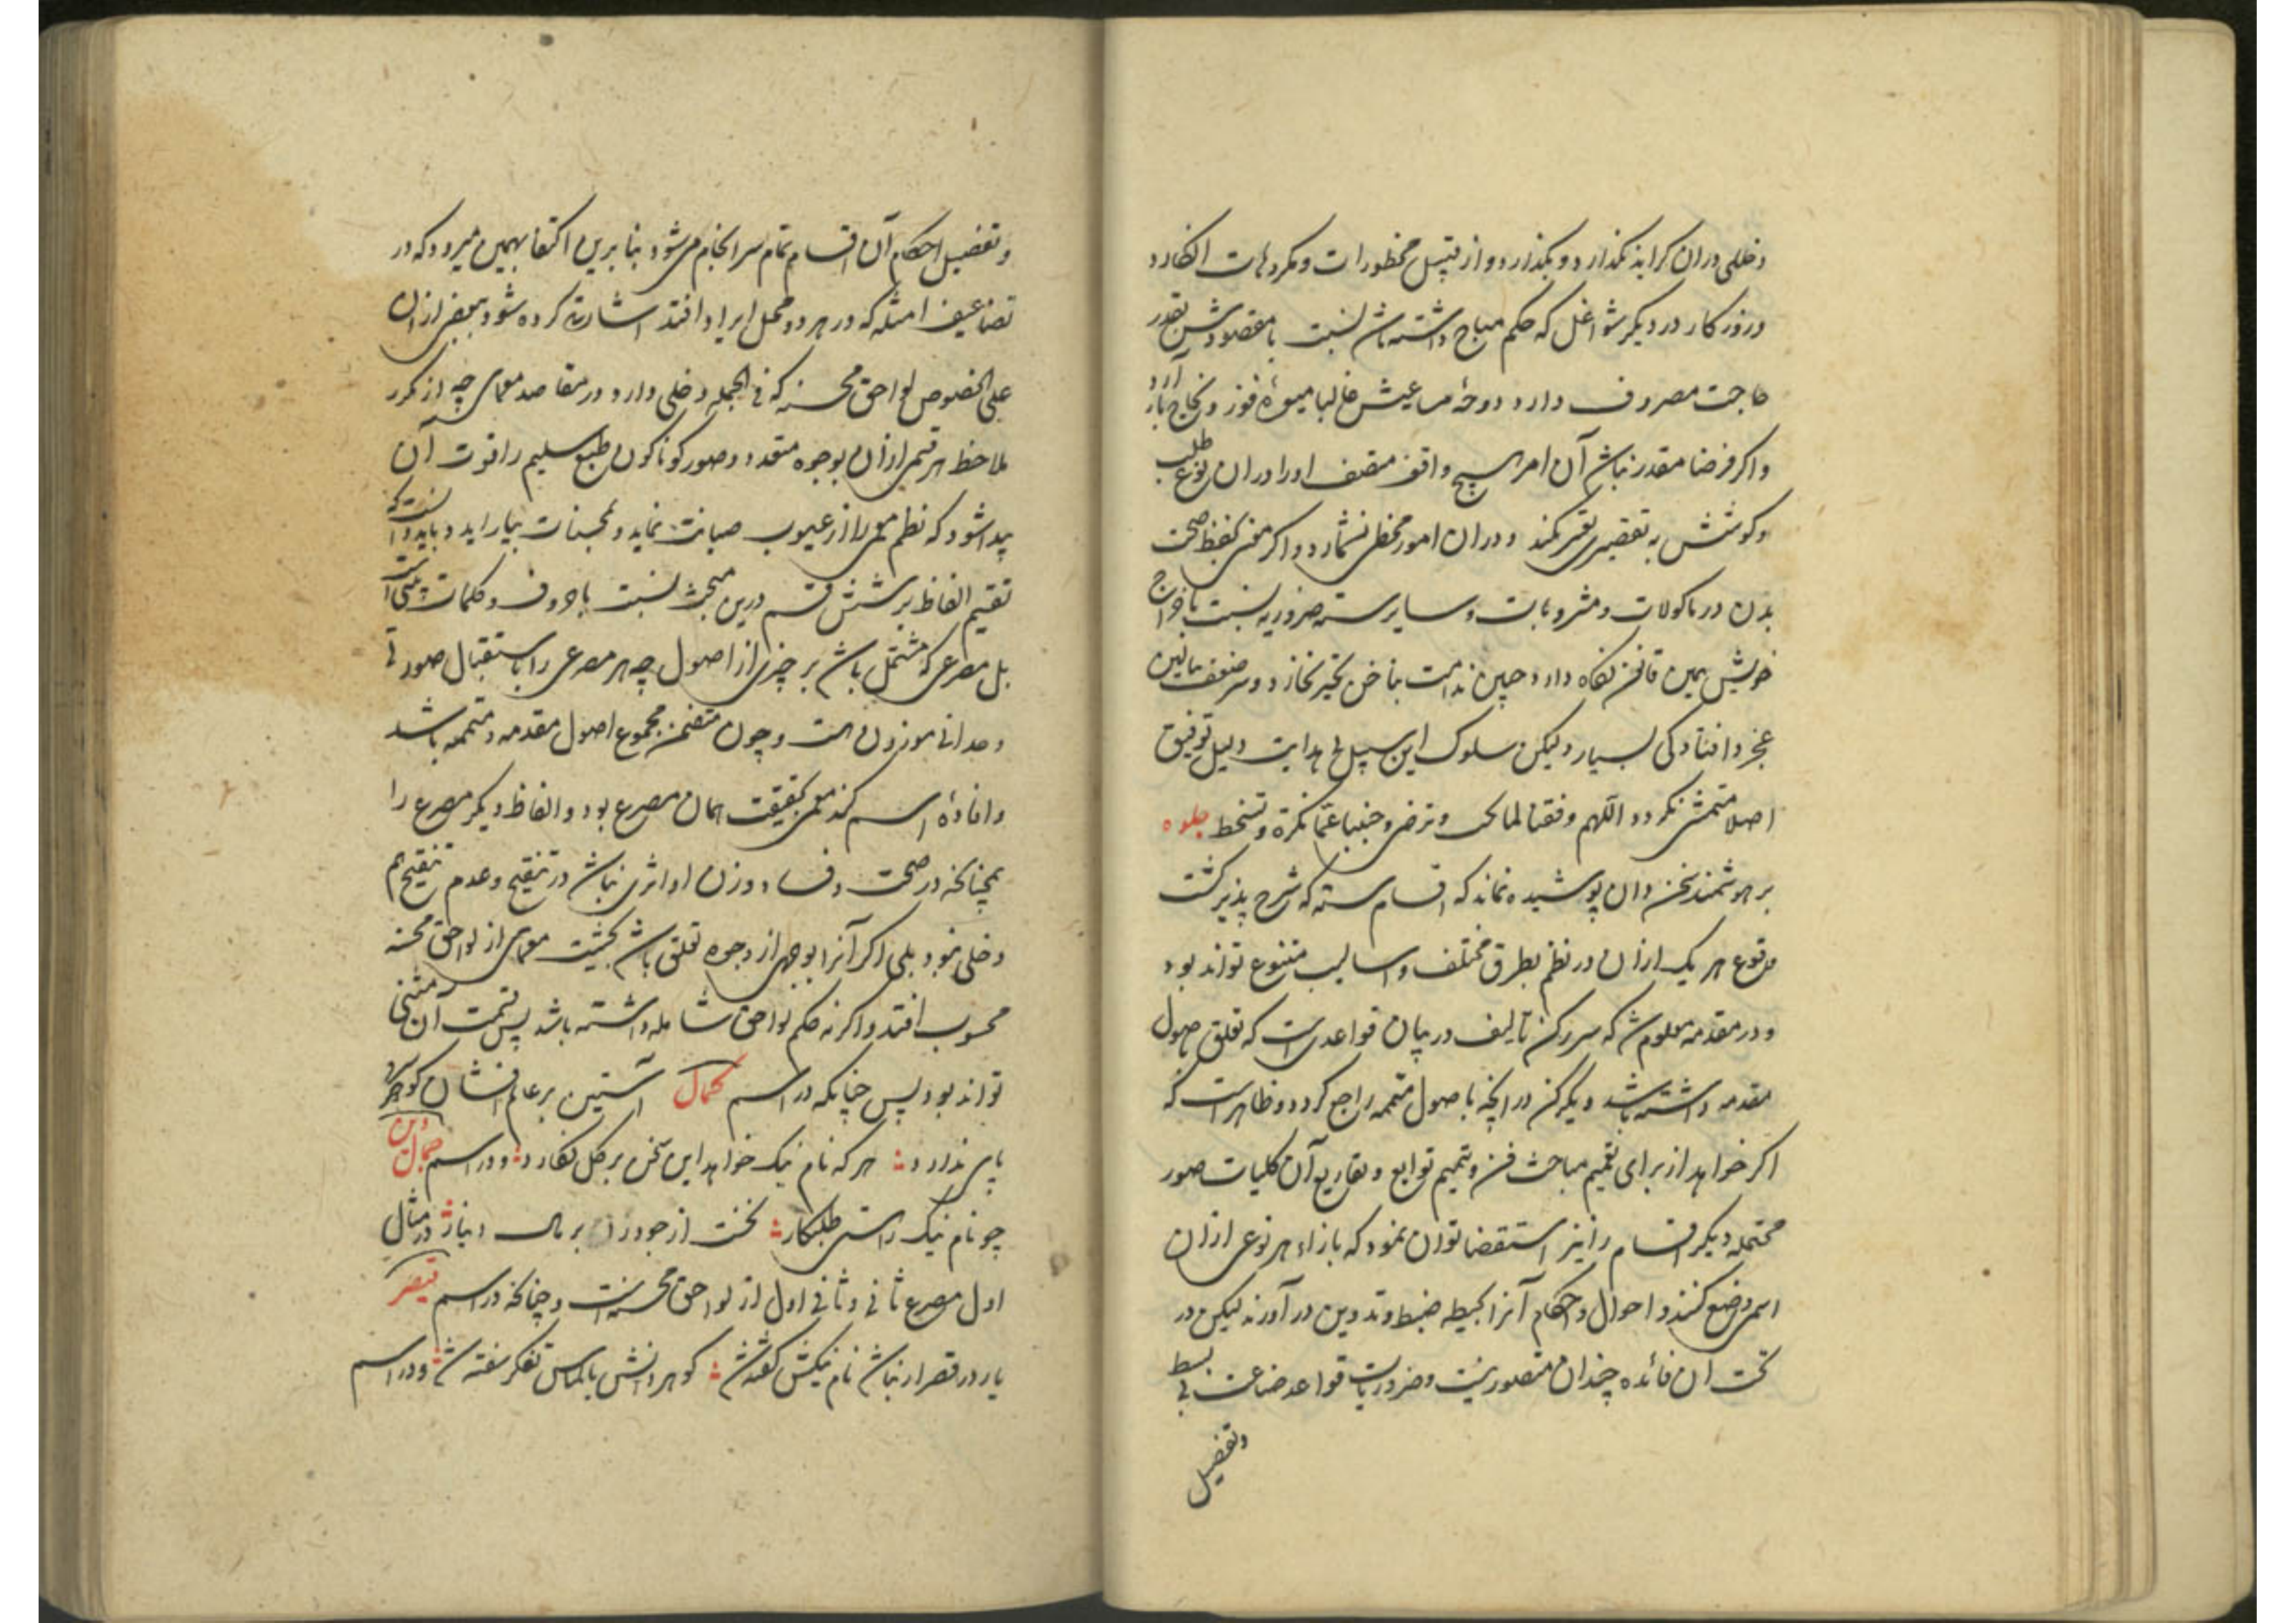 دخلی دران کراید نگذارد و بگذارد و از قبیل محظورات و مکروهات انگارد
و روزکار در دیگر شواغل که حکم مباح داشته باش نسبت با مقصودش بقدر
حاجت مصروف دارد دوحهٔ مساعیش غالبا میوهٔ فوز و نجاح بار آرد
و اگر فرضا مقدر نباش آن امر هیچ واقف منصف او را دران نوع طلب
و کوشش به تقصیر نکند و دران امور مخطی نشمارد و اگر در حفظ صحت
بدن در ماکولات و مشروبات و سایر سته ضروریه نسبت با مزاج
خویش همین قانون نگاه دارد جبین ندامت بناخن تحیر نخارد و سر ضعف ببالین
عجز و افتادگی نسپارد لیکن سلوک این سبیل بی هدایت دلیل توفیق
اصلا متمشی نگردد اللهم وفقنا لما تحب و ترضی و جنبنا عما تکره و تسخط جلوه
بر هوشمند سخن دان پوشیده نماند که اقسام سته که شرح پذیر گشت
وقوع هر یک ازان در نظم بطرق مختلف و اسالیب متنوع تواند بود
و در مقدمه معلوم ش که سررکن تالیف در بیان قواعدیست که تعلق باصول
مقدمه داشته باشد و یکرکن درانچه باصول متممه راجع گردد و ظاهر است که
اگر خواهد از برای تعمیم مباحث فن و تتمیم توابع و تفاریع آن کلیات صور
محتمله دیگر اقسام را نیز استقصا توان نمود که بازاء هر نوعی ازان
اسمی وضع کنند و احوال و احکام آنرا بحیطه ضبط و تدوین درآورند لیکن در
تحت ان فائده چندان متصور نیست و ضروریات قواعد صناعت بی بسط
وتفصیل
و تفصیل احکام آن اقسام تمام سرانجام می‌شود بنا برین اکتفا بهمین میرود که در
تضاعیف امثله که در هر دو محل ایراد افتد اشارت کرده شود ببعضی ازان
علی الخصوص لواحق محسنه که فی الجمله دخلی دارد در مقاصد معمای چه از تکرر
ملاحظه هر قسمی ازان بوجوه متعدد و صور کوناکون طبع سلیم را قوت آن
پیدا شود که نظم معمی را از عیوب صیانت نماید و بمحسنات بیاراید و باید دانست که
تقسیم الفاظ بر شش قسم درین مبحث نسبت با حروف و کلمات بیتی است
بل مصرعی که مشتمل باش بر چیزی از اصول چه هر مصرعی را باستقبال صورتی
وحدانی موزون است و چون متضمن مجموع اصول مقدمه و متممه باشد
و افادهٔ اسم کند معمی بحقیقت همان مصرع بود و الفاظ دیگر مصرع را
همچنانکه در صحت و فساد وزن او اثری نباش در تنقیح و عدم تنقیح هم
دخلی نبود بلی اگر آنرا بوجهی از وجوه تعلق باش بحیثیت معمای از لواحق محسنه
محسوب افتد و اگر نه حکم لواحق شامله داشته باشد پس قسمت آن مثنی
تواند بود پس چنانکه در اسم کمال آستین بر عالم افشان کو هرکه
پاس ندارد هر که نام نیک خواهد این سخن بر کل نگارد و در اسم جمال دین
چو نام نیک راستی طلبکار نخست از جود زن بر مال دینار در مثال
اول مصرع ثانی و ثانی اول از لواحق محسنه است و چنانکه در اسم قیصر
یار در قصر ار نباش نام نیکش گفته ش گوهر دانش بالماس تفکر سفته ش و در اسم